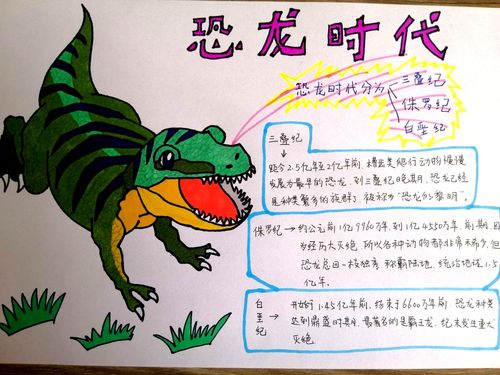 恐龙时代
恐龙时代分为
三叠纪
侏罗纪
白垩纪
三叠纪
距今2.5亿年至2亿年前,槽齿类爬行动物慢慢
发展为最早的恐龙,到三叠纪晚期,恐龙已经
是种类繁多的族群了,被称为"恐龙的黎明"。
侏罗纪→约公元前1亿9960万年,到1亿4550万年,前期,因
为经历大灭绝,所以各种动物都非常稀少,但
恐龙总目一枝独秀,称霸陆地,统治地球1.5
亿年。
白垩纪→
开始于1.45亿年前,结束于6600万年前,恐龙种类
达到鼎盛时期,最著名的是霸王龙,纪末发生重大
灭绝